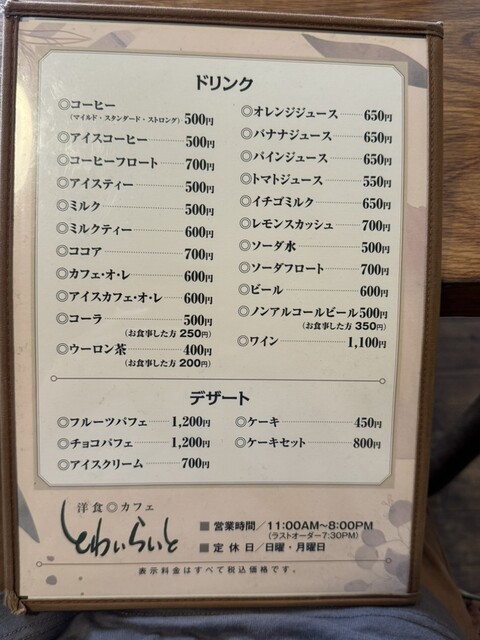 ドリンク
◎コーヒー
(マイルド・スタンダード・ストロング) 500円
◎アイスコーヒー 500円
◎コーヒーフロート 700円
◎アイスティー 500円
◎ミルク 500円
◎ミルクティー 600円
◎ココア 700円
◎カフェ・オ・レ 600円
◎アイスカフェ・オ・レ 600円
◎コーラ 500円
(お食事した方 250円)
◎ウーロン茶 400円
(お食事した方 200円)
◎オレンジジュース 650円
◎バナナジュース 650円
◎パインジュース 650円
◎トマトジュース 550円
◎イチゴミルク 650円
◎レモンスカッシュ 700円
◎ソーダ水 500円
◎ソーダフロート 700円
◎ビール 600円
◎ノンアルコールビール 500円
(お食事した方 350円)
◎ワイン 1,100円
デザート
◎フルーツパフェ 1,200円
◎チョコパフェ 1,200円
◎アイスクリーム 700円
◎ケーキ 450円
◎ケーキセット 800円
洋食◎カフェ
とわいらいと
■営業時間/11:00AM〜8:00PM
(ラストオーダー7:30PM)
■定休日/日曜・月曜日
表示料金はすべて税込価格です。